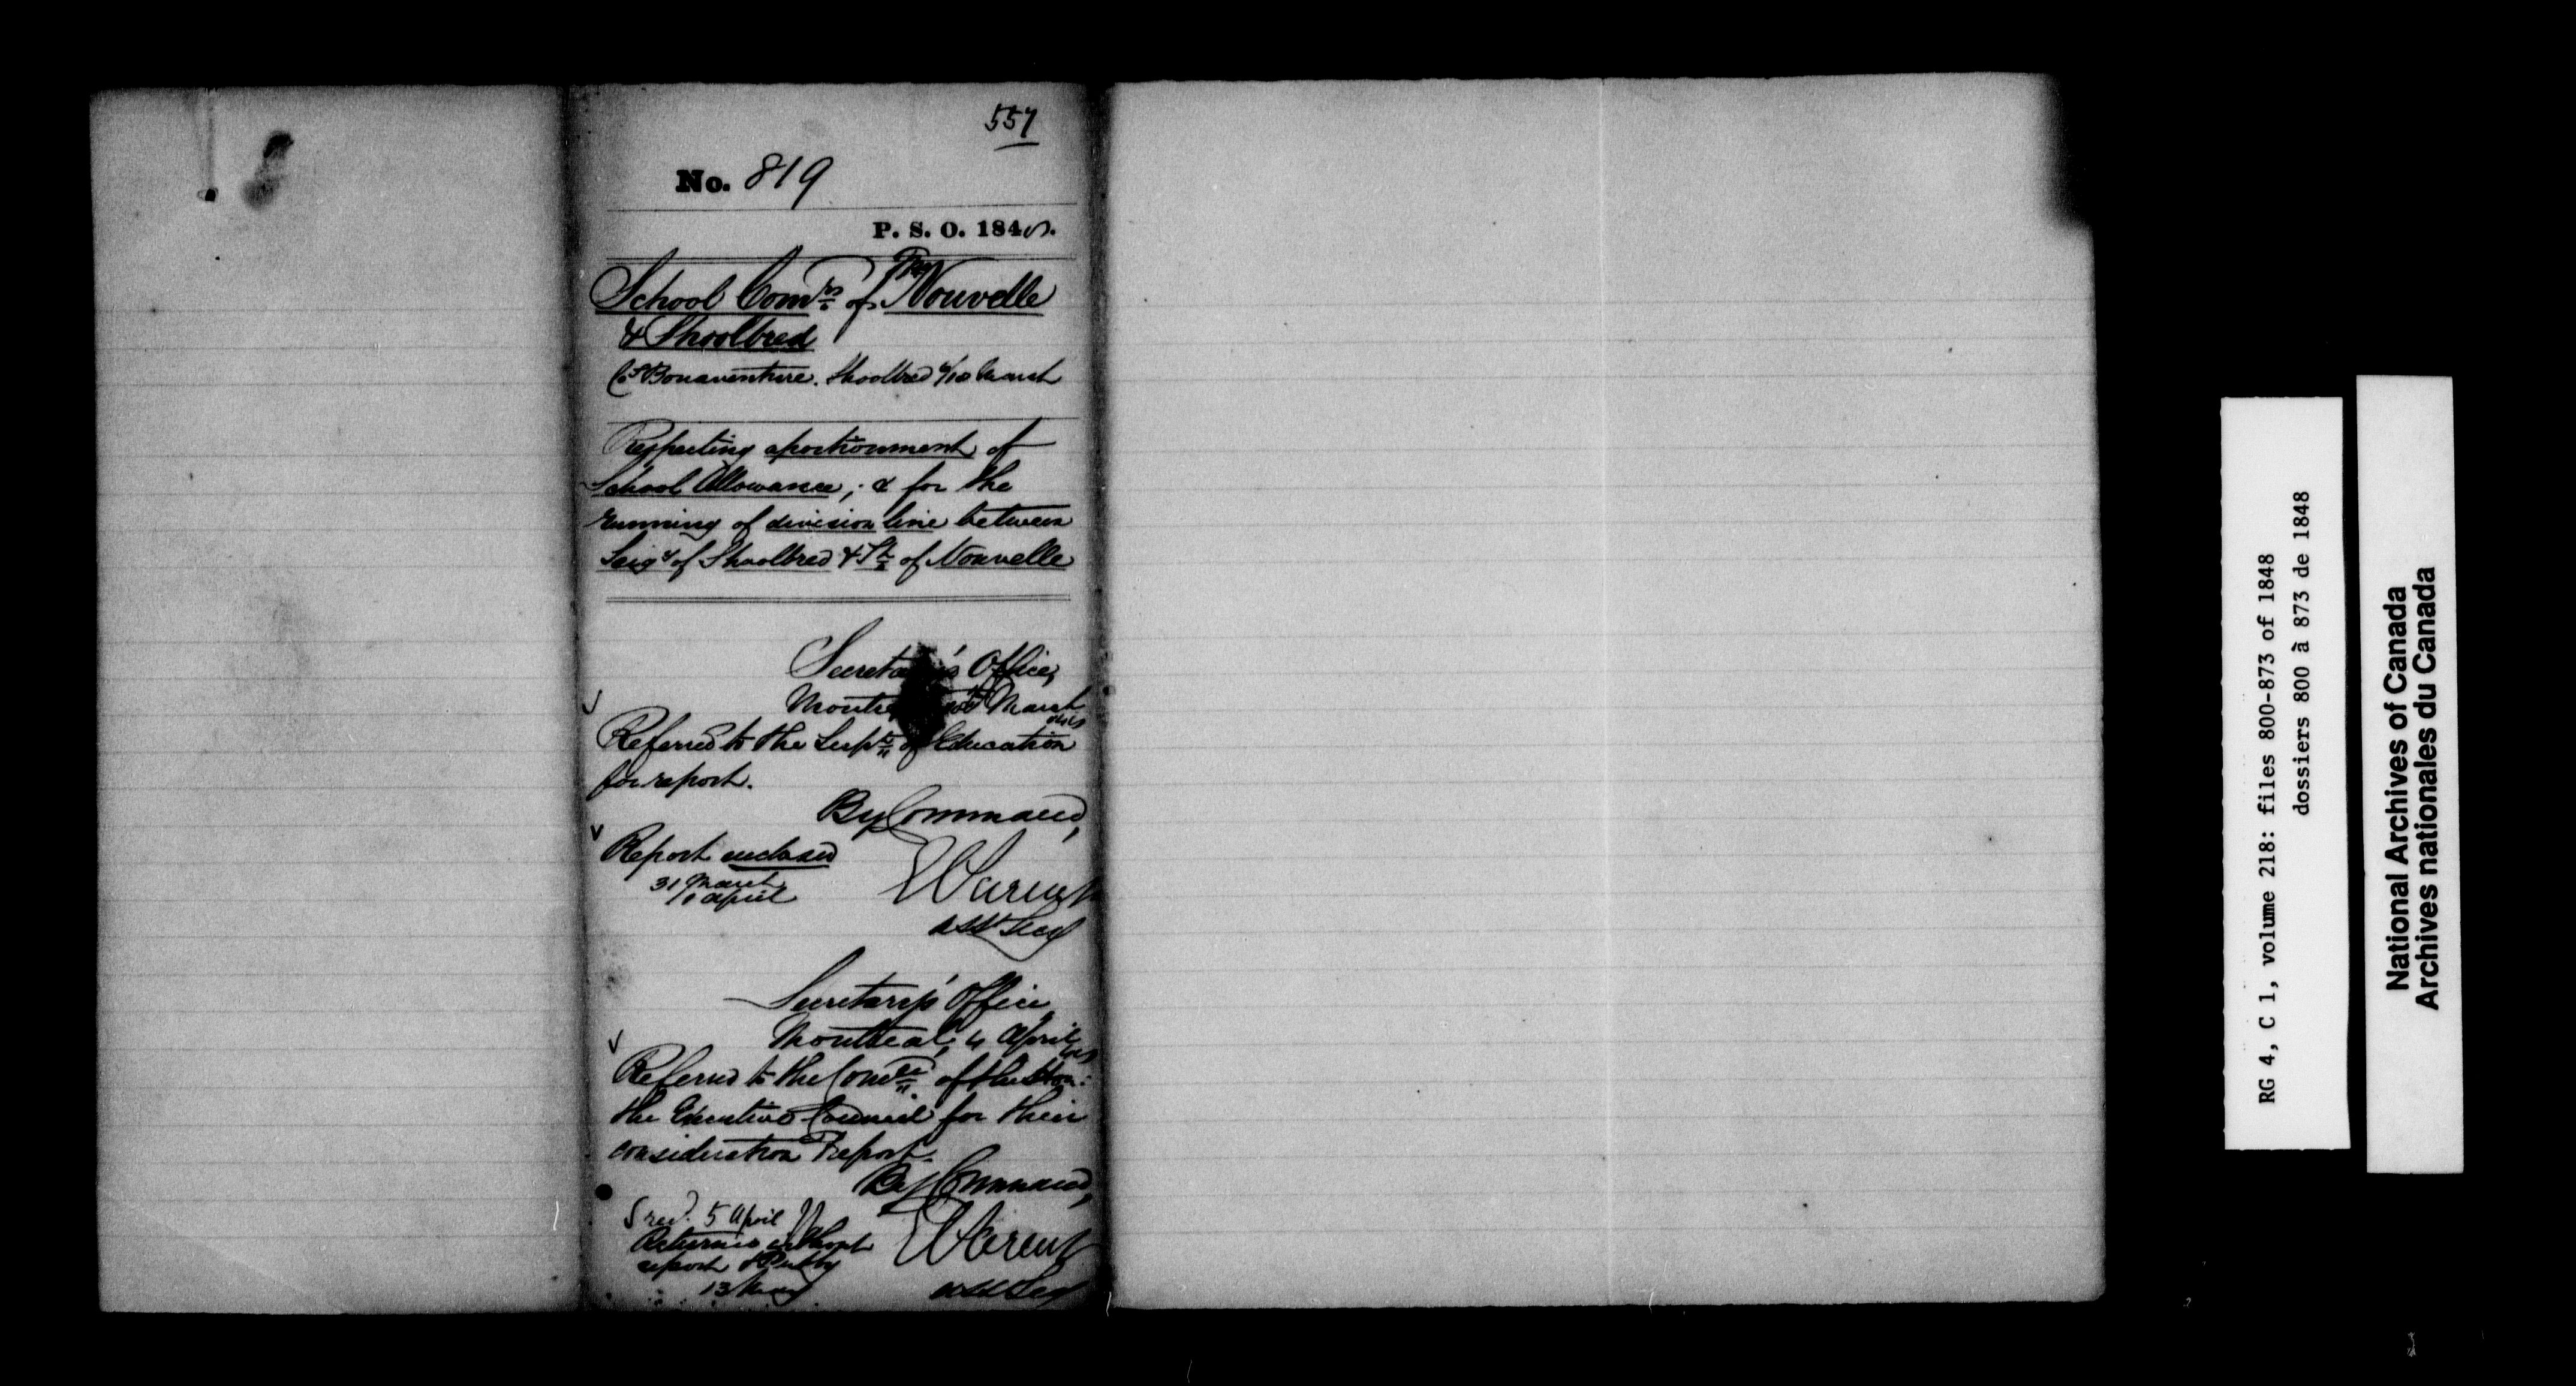 557
No. 819
P. S. O. 1848.
School Comrs of Nouvelle
& Shoolbred
Co Bonaventure. Shoolbred 4/10 March
Respecting aportionment of
School Allowance; & for the
running of division line between
Seigy of Shoolbred & Tp of Nouvelle
Secretary's Office,
Montreal March
Referred to the Supt of Education
for report.
By Command,
Report enclosed
31 March
1 April
E Parent
Asst Secy
Secretary's Office
Montreal, 4 April
Referred to the Comtee of the Hon:
the Executive Council for their
consideration & report.
By Command,
recd. 5 April
Returned without
report
13 May
E Parent
Asst Secy
RG 4, C 1, volume 218: files 800-873 of 1848
dossiers 800 à 873 de 1848
National Archives of Canada
Archives nationales du Canada